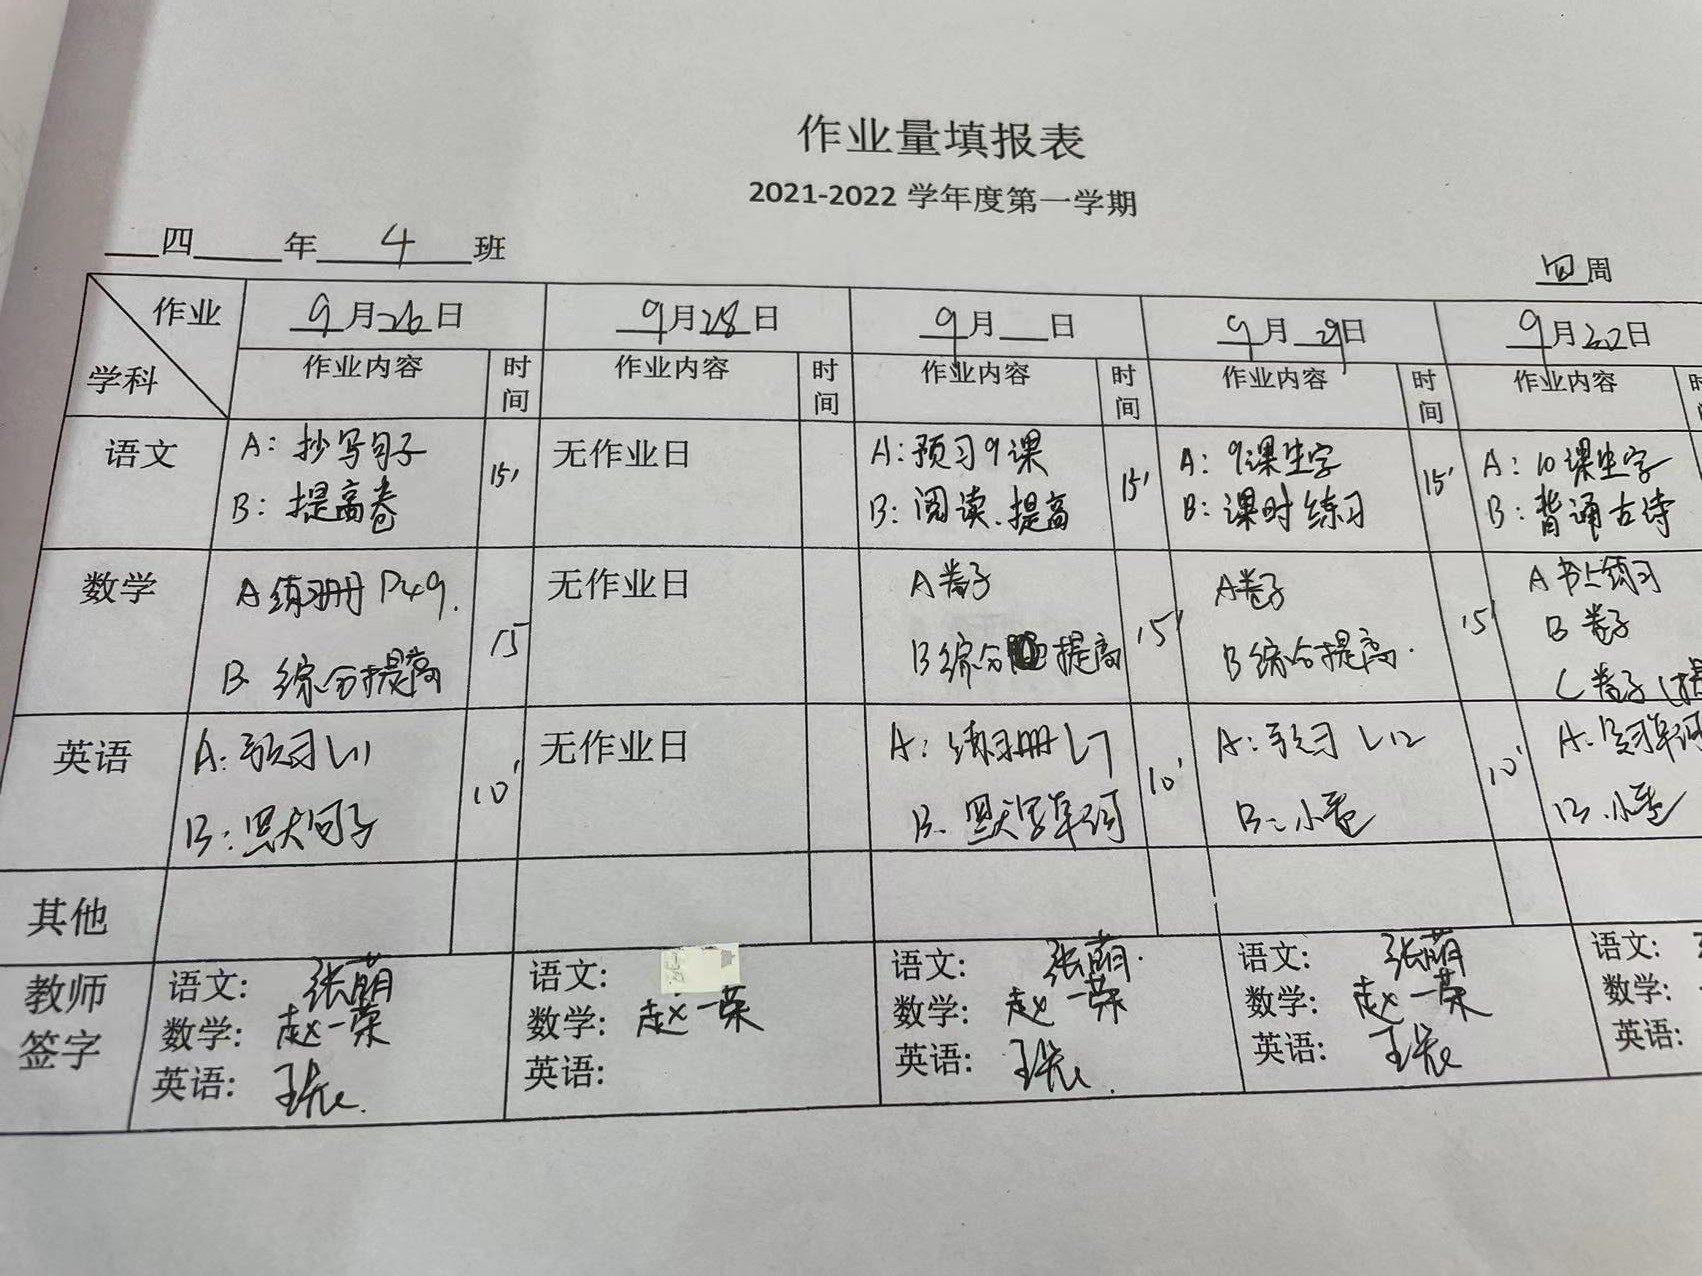 作业量填报表
2021-2022 学年度第一学期
四 年 4 班
四周
作业 9月26日 9月28日 9月 日 9月29日 9月 日
学科 作业内容 时间 作业内容 时间 作业内容 时间 作业内容 时间 作业内容
语文 A: 抄写句子 15' 无作业日 A:预习9课 15' A: 9课生字 15' A: 10课生字
B: 提高卷 B: 阅读、提高 B: 课时练习 B: 背诵古诗
数学 A 练习册 P49. 15 无作业日 A 卷子 15' A卷子 15' A 书上练习
B. 综合提高 B综合 提高 B综合提高. B 卷子
C 卷子
英语 A: 预习 L11 10' 无作业日 A: 练习册 L7 10' A: 预习 L12 10' A:
B: 默句子 B. 默写单词 B: 小卷 B. 小卷
其他
教师签字 语文: 张萌 语文: 语文: 张萌 语文: 张萌 语文:
数学: 赵一荣 数学: 赵一荣 数学: 赵一荣 数学: 赵一荣 数学:
英语: 英语: 英语: 英语: 英语: